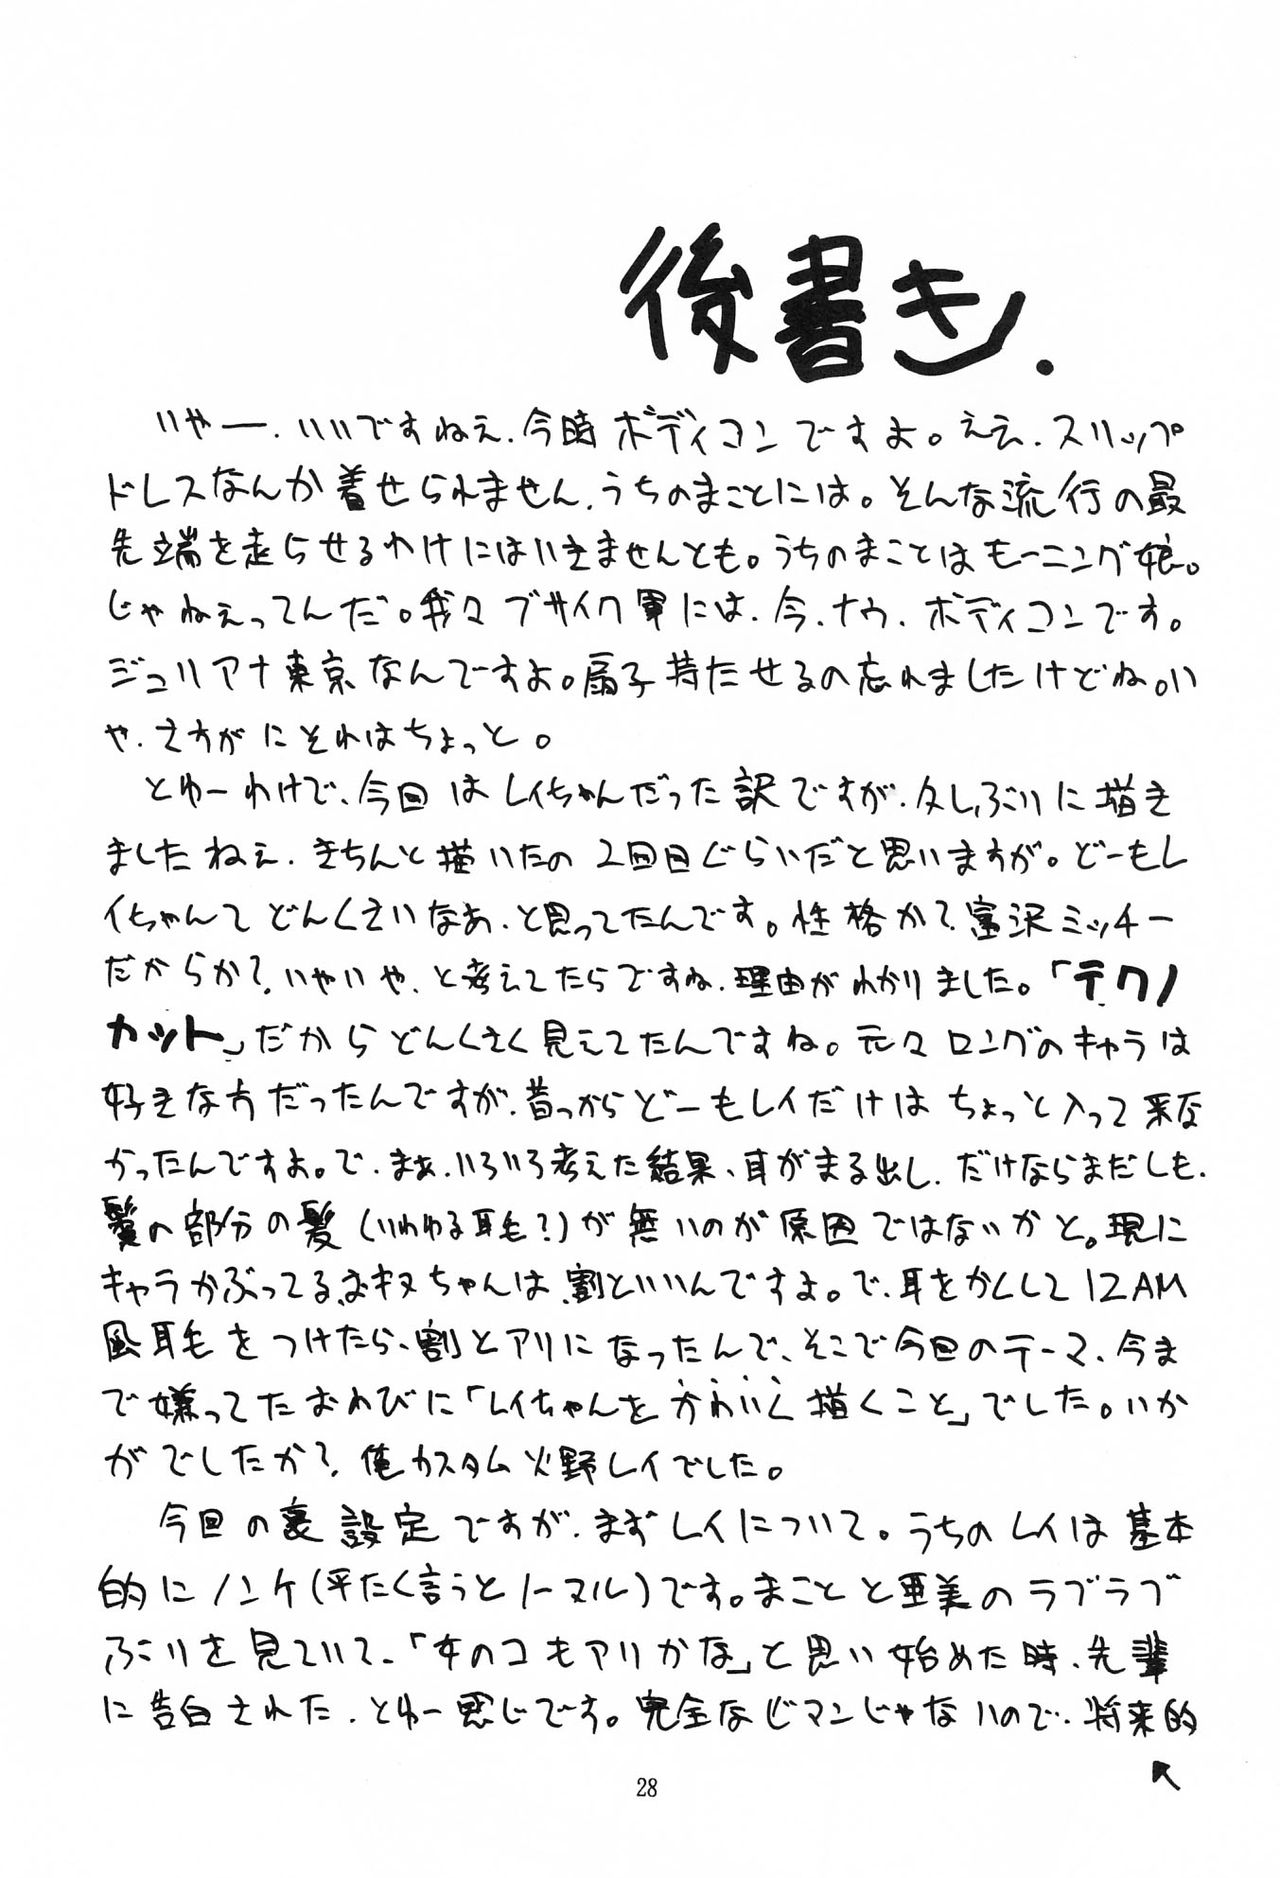 後書き.
いやー、いいですねぇ、今時ボディコンですよ。ええ、スリップ
ドレスなんか着せられません、うちのまことには。そんな流行の最
先端を走らせるわけにはいきませんとも。うちのまことはモーニング娘。
じゃねぇってんだ。我々ブサイク軍には、今、ナウ、ボディコンです。
ジュリアナ東京なんですよ。扇子持たせるの忘れましたけどね。い
や、さすがにそれはちょっと。
とゆーわけで、今回はレイちゃんだった訳ですが、久しぶりに描き
ましたねぇ、きちんと描いたの2回目ぐらいだと思いますが。どーもレ
イちゃんてどんくさいなぁ、と思ってたんです。性格か?富沢ミッチー
だからか?いやいや、と考えてたらですね、理由がわかりました。「テクノ
カット」だからどんくさく見えてたんですね。元々ロングのキャラは
好きな方だったんですが、昔っからどーもレイだけはちょっと入って来な
かったんですよ。で、まぁ、いろいろ考えた結果、耳がまる出し、だけならまだしも、
鬢の部分の髪(いわゆる耳毛?)が無いのが原因ではないかと。現に
キャラかぶってるおキヌちゃんは、割といいんですよ。で、耳をかくして12AM
風耳毛をつけたら、割とアリになったんで、そこで今回のテーマ、今ま
で嫌ってたおわびに「レイちゃんをかわいく描くこと」でした。いか
がでしたか?俺カスタム火野レイでした。
今回の裏設定ですが、まずレイについて。うちのレイは基本
的にノンケ(平たく言うとノーマル)です。まことと亜美のラブラブ
ぶりを見ていて、「女のコもアリかな」と思い始めた時、先輩
に告白された、とゆー感じです。完全なビアンじゃないので、将来的
28